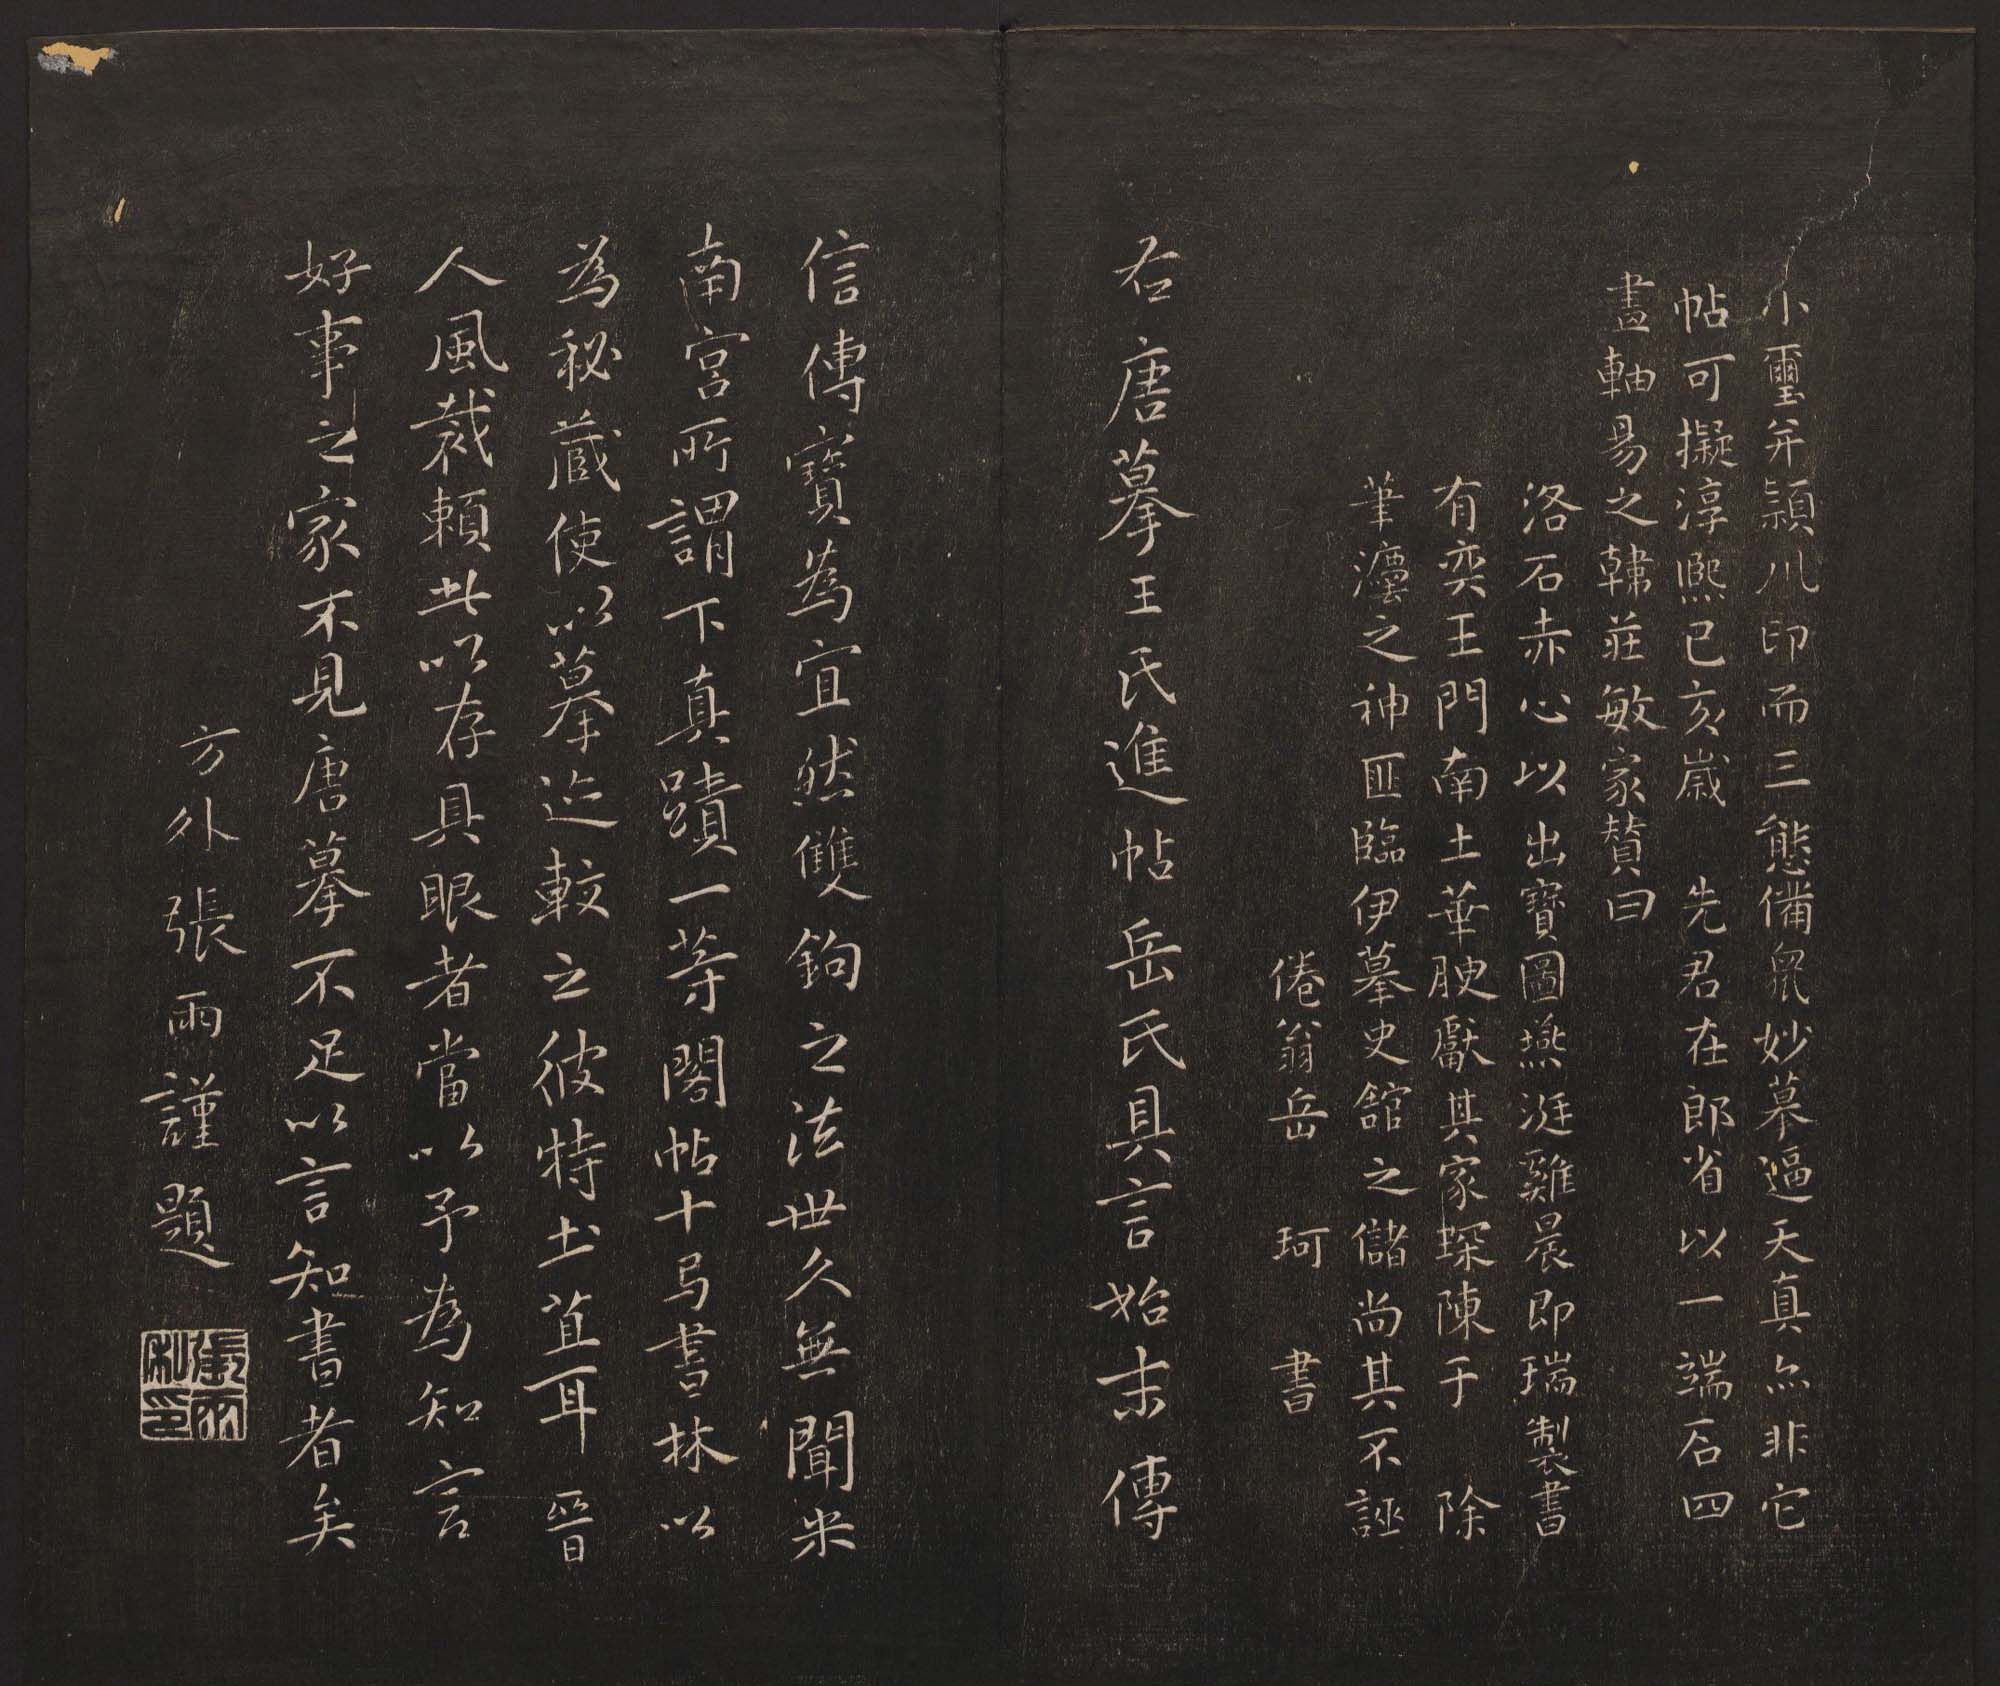 小璽并潁川印而三態備眾妙摹逼天真亦非它
帖可擬淳熙已亥歲 先君在郎省以一端石四
畫軸易之韓莊敏家贊曰
洛石赤心以出寶圖燕涎雞晨即瑞製書
有奕王門南土華腴獻其家琛陳于 除
筆瀍之神匪臨伊摹史館之儲尚其不誣
倦翁岳 珂 書
右唐摹王氏進帖岳氏具言始末傳
信傳寶為宜然雙鉤之法世久無聞米
南宮所謂下真蹟一等閣帖十馬書林以
為秘藏使以摹迹較之彼特土苴耳晉
人風裁賴此以存具眼者當以予為知言
好事之家不見唐摹不足以言知書者矣
方外張雨謹題
張雨私印